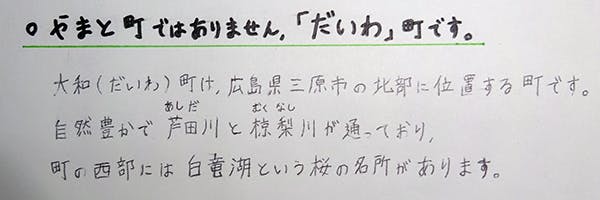 ○ やまと町ではありません,「だいわ」町です。
大和(だいわ)町は,広島県三原市の北部に位置する町です。
自然豊かで芦田川と椋梨川が通っており,
あしだ むくなし
町の西部には白竜湖という桜の名所があります。